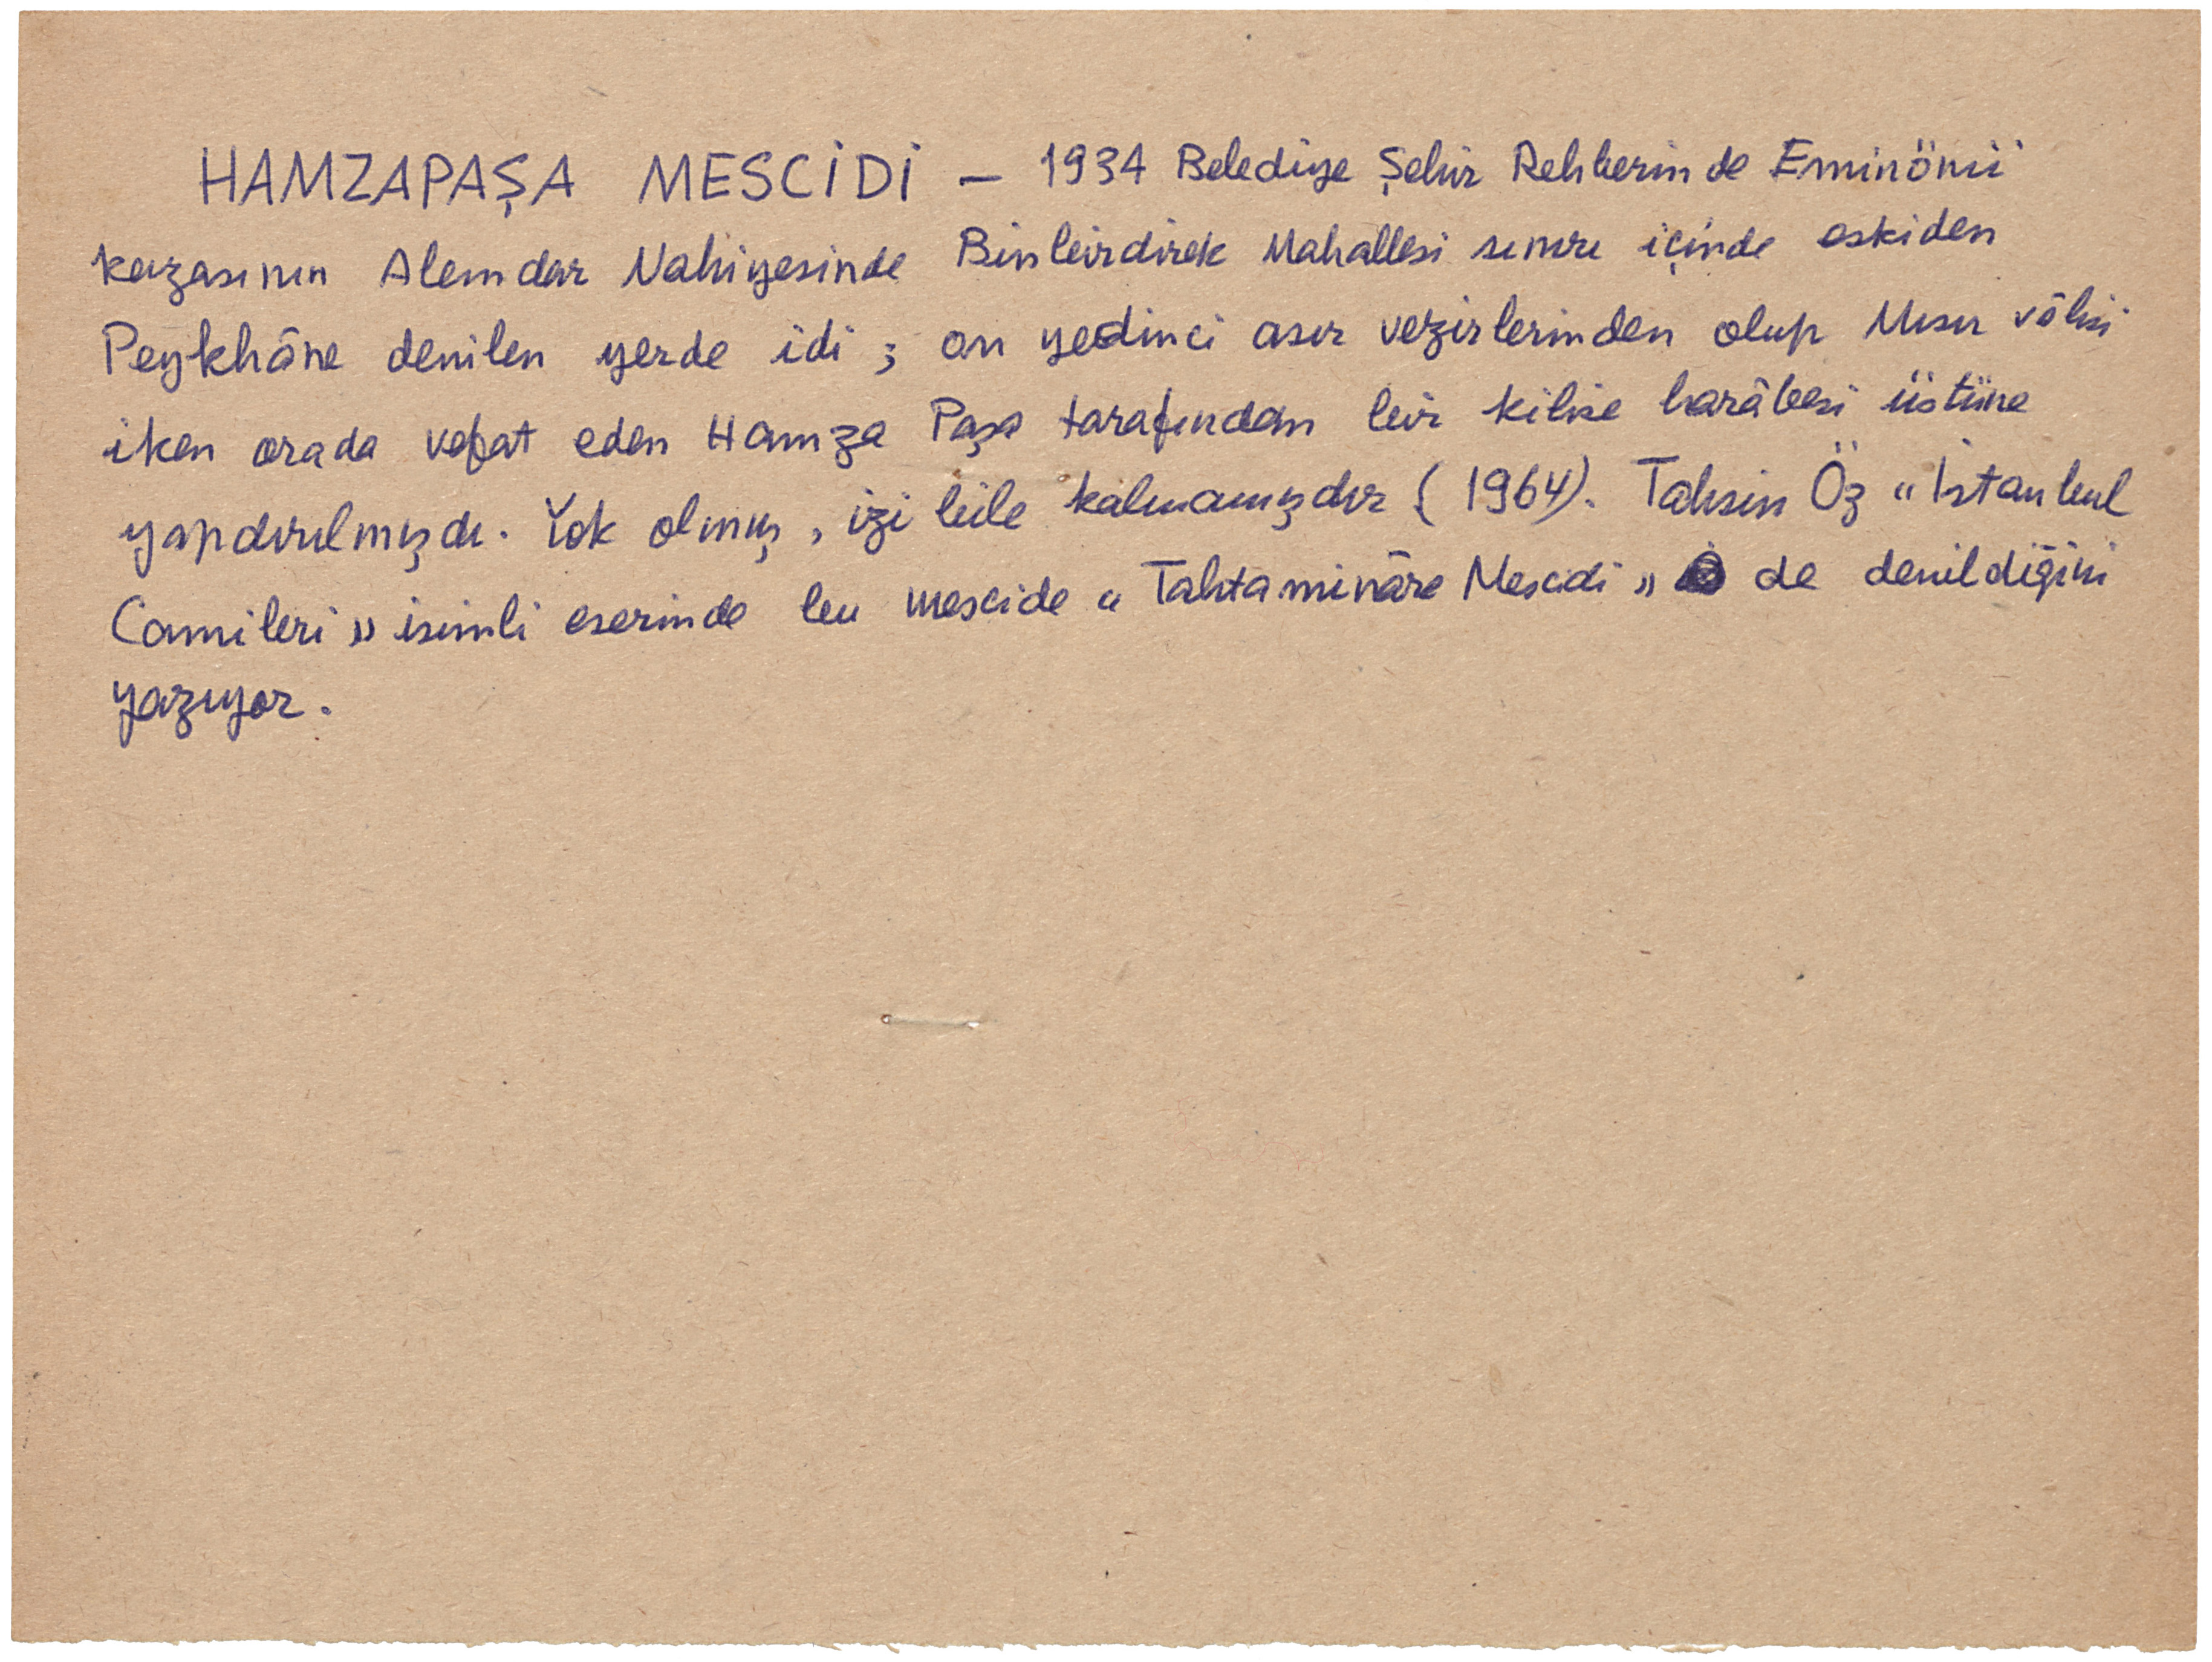 HAMZAPAŞA MESCİDİ — 1934 Belediye Şehir Rehberinde Eminönü
kazasının Alemdar Nahiyesinde Binbirdirek Mahallesi sınırı içinde eskiden
Peykhâne denilen yerde idi; on yedinci asır vezirlerinden olup Mısır vâlisi
iken orada vefat eden Hamza Paşa tarafından bir kilise harâbesi üstüne
yapdırılmışdı. Yok olmuş, izi bile kalmamışdır (1964). Tahsin Öz "İstanbul
Camileri" isimli eserinde bu mescide "Tahtaminâre Mescidi" de denildiğini
yazıyor.